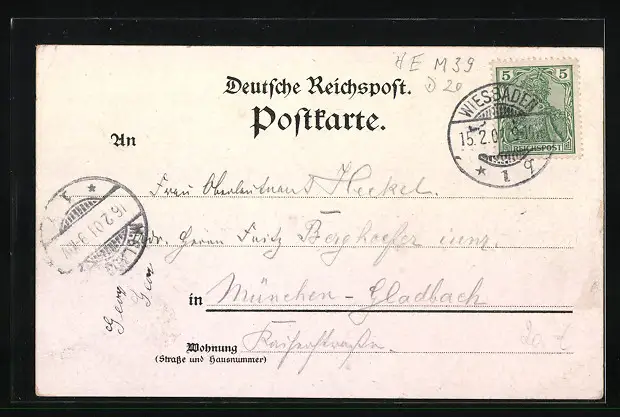 HE M39
D 20
Deutsche Reichspost.
Postkarte.
5 5
REICHSPOST
WIESBADEN
15.2.01
* 1 g
An
Frau Oberleutnant Heckel.
Adr. Herrn Fritz Berghoefer
in München-Gladbach
Wohnung Kaiserstrasse.
(Straße und Hausnummer)
16.2.01